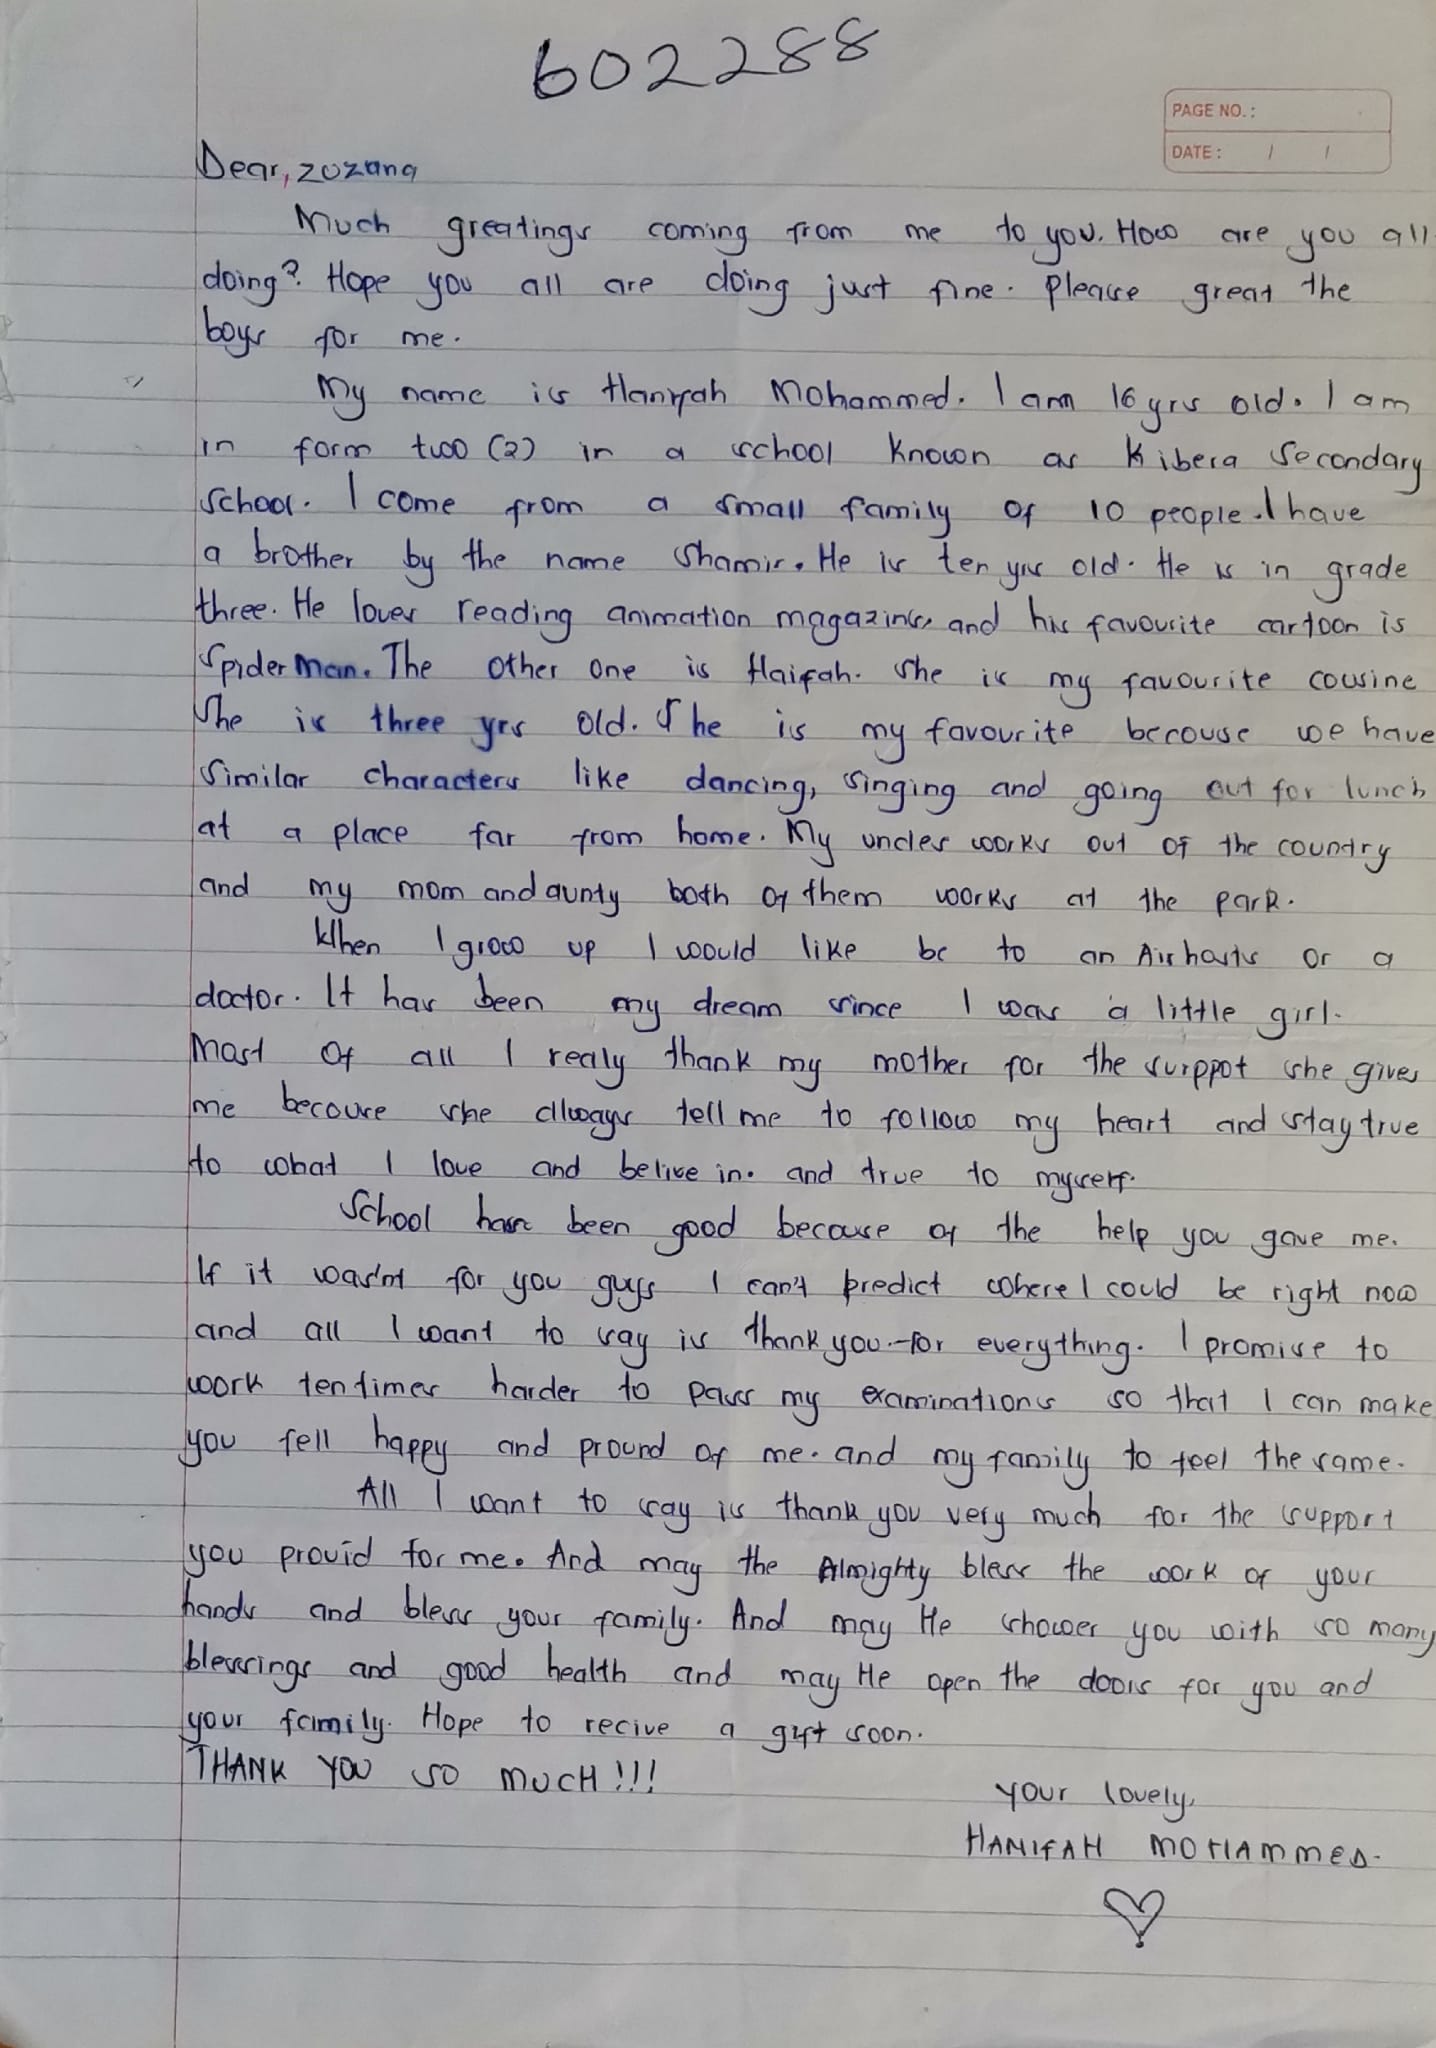 602288
PAGE NO.:
DATE: / /
Dear, zozana
Much greatings coming from me to you. How are you all
doing? Hope you all are doing just fine. Please great the
boys for me.
My name is Hanifah Mohammed. I am 16 yrs old. I am
in form two (2) in a school known as Kibera Secondary
School. I come from a small family of 10 people. I have
a brother by the name Shamir. He is ten yrs old. He is in grade
three. He loves reading animation magazines and his favourite cartoon is
Spider Man. The other one is Haifah. She is my favourite cousine
She is three yrs old. She is my favourite becouse we have
similar characters like dancing, singing and going out for lunch
at a place far from home. My uncles works out of the country
and my mom and aunty both of them works at the park.
When I grow up I would like be to an Air hosts or a
doctor. It has been my dream since I was a little girl.
Most of all I realy thank my mother for the surppot she gives
me becouse she always tell me to follow my heart and stay true
to what I love and belive in. and true to myself.
School has been good because of the help you gave me.
If it wasnt for you guys I can't predict where I could be right now
and all I want to say is thank you for everything. I promise to
work ten times harder to pass my examinations so that I can make
you fell happy and pround of me. and my family to feel the same.
All I want to say is thank you very much for the support
you provid for me. And may the Almighty bless the work of your
hands and bless your family. And may He shower you with so many
blessings and good health and may He open the doors for you and
your family. Hope to recive a gift soon.
THANK YOU SO MUCH!!!
Your lovely,
HANIFAH MOHAMMED.